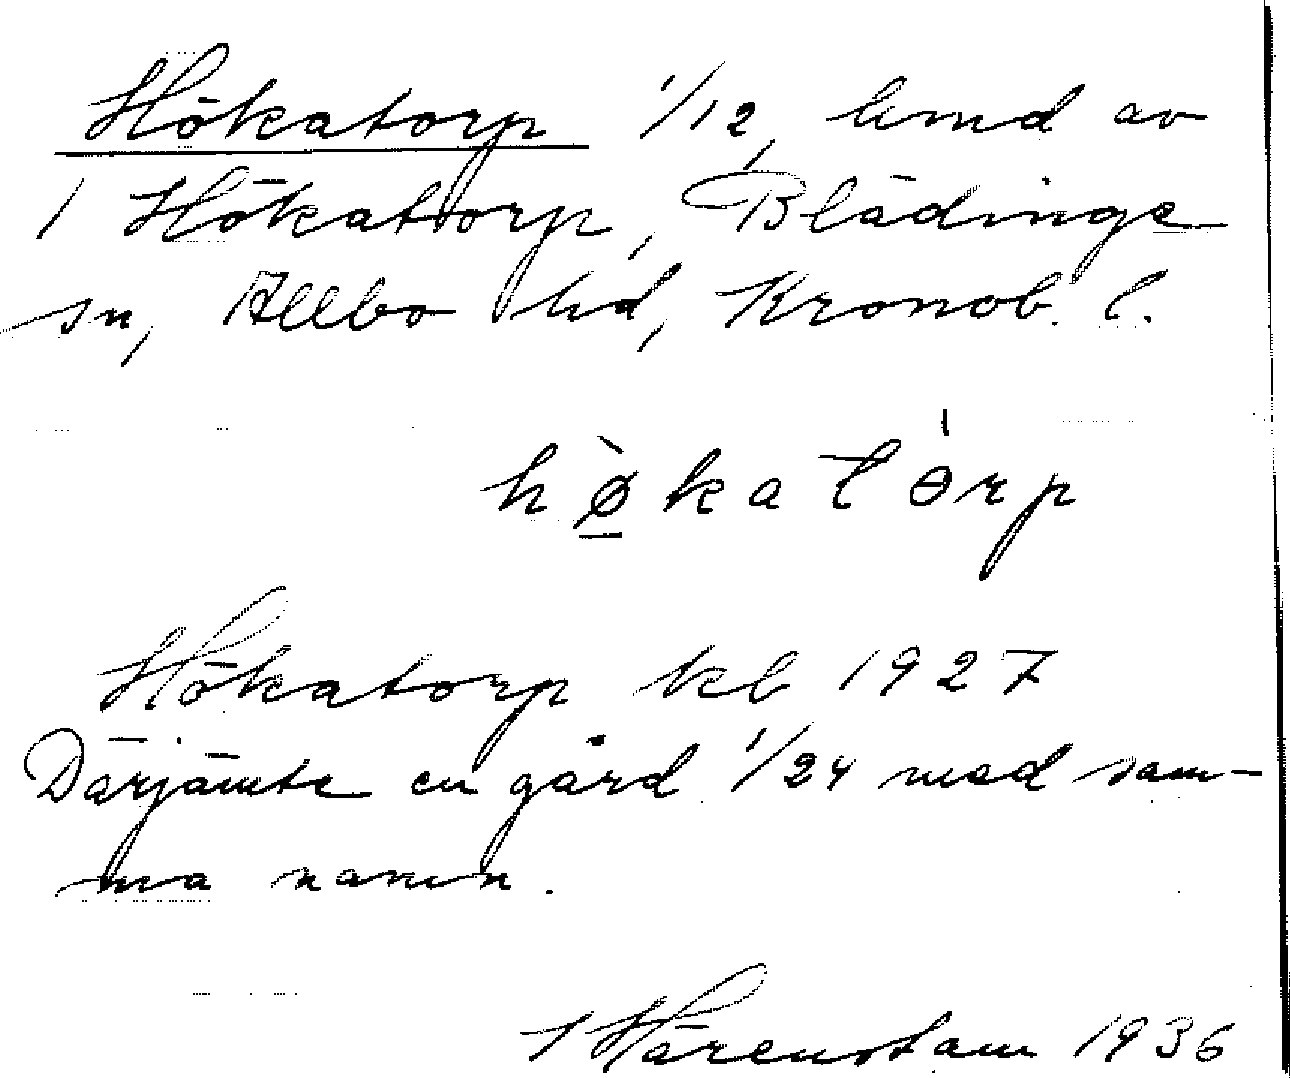 Hökatorp 1/12, hmd av
1 Hökatorp, Blädinge
sn, Allbo hd, Kronob. l.
hø̲̀katɵ̍rp
Hökatorp kb 1927
Därjämte en gård 1/24 med sam-
ma namn.
Härenstam 1936